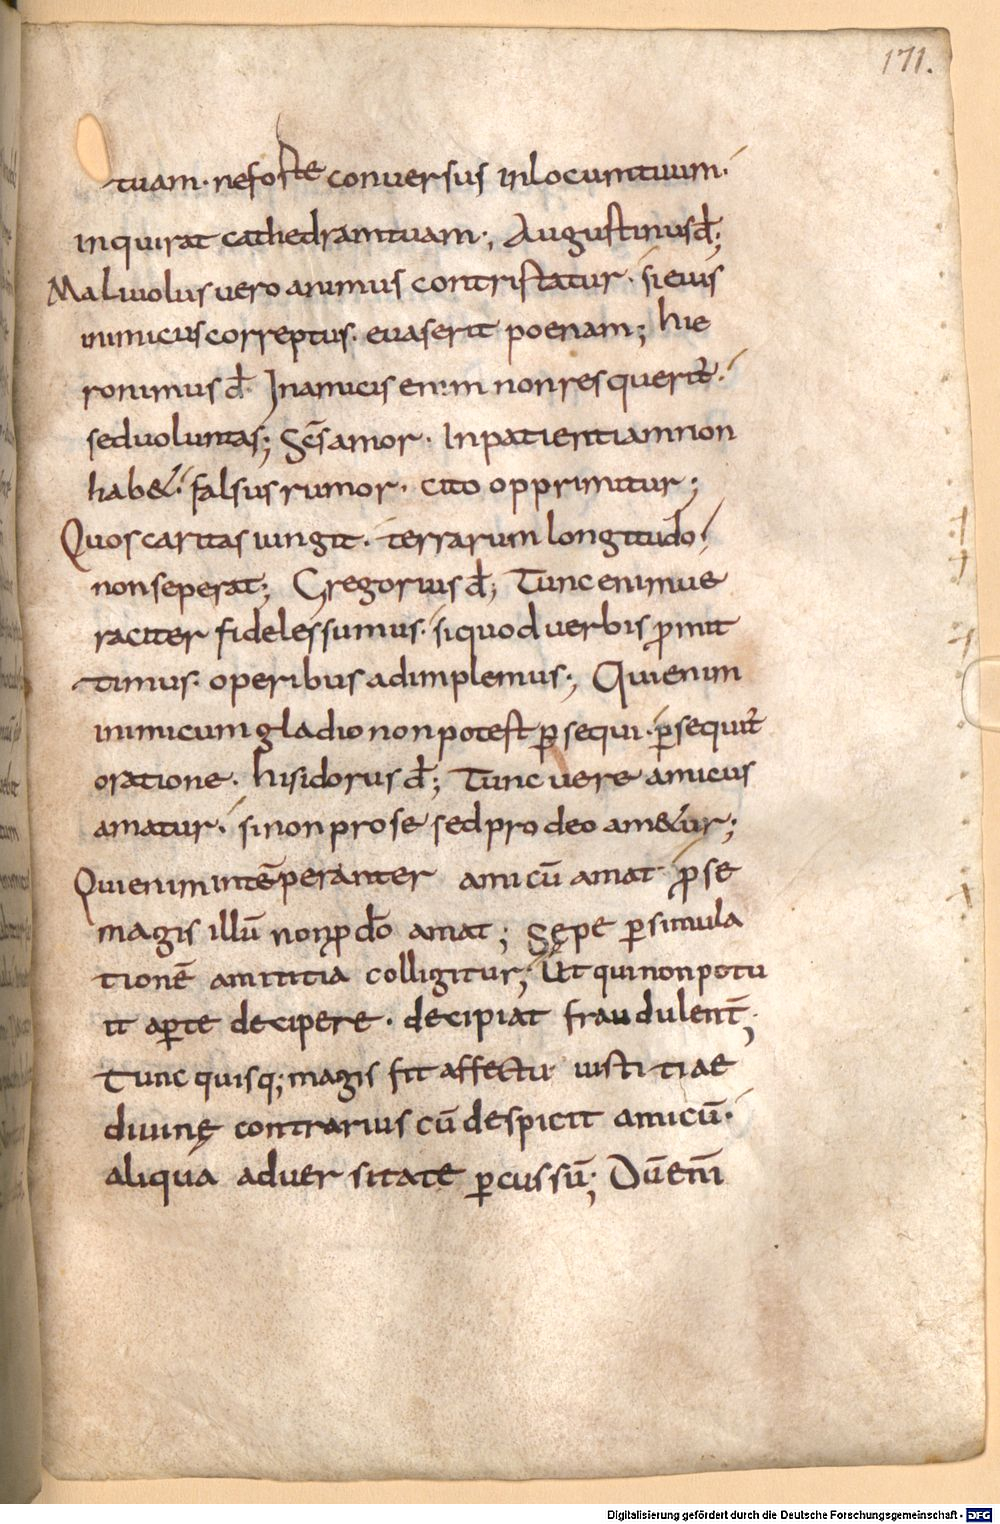 171.
tuam· ne forte conuersus in locum tuum·
inquirat cathedram tuam·, Augustinus đ;
Maliuolus uero animus contristatur· si eius
inimicus correptus· euaserit poenam; hie
ronimus đ· In amicis enim non res queriť·
sed uoluntas; Sc̄s amor· Inpatientiam non
hab&· falsus rumor· cito opprimitur;
Quos caritas iungit· terrarum longitudo
non seperat; Gregorius đ; Tunc enim ue
raciter fideles sumus· si quod uerbis ꝓmit
timus· operibus adimplemus·, Qui enim
inimicum gladio non potest ꝑsequi· ꝑsequiť
oratione· hisidorus đ; Tunc uere amicus
amatur· si non pro se sed pro deo am&ur;
Qui enim intēperanter amicū amat· ꝓ se
magis illū non ꝓ dō amat; Sępe ꝑ simula
tionē amititia colligitur; Ut qui non potu
it aꝑte decipere· decipiat fraudulent̄;
Tunc quisq; magis fit affectu iustitiae
diuinę contrarius cū despicit amicū·
aliqua aduersitate ꝑcussū; Dū eni̅
Digitalisierung gefördert durch die Deutsche Forschungsgemeinschaft - DFG